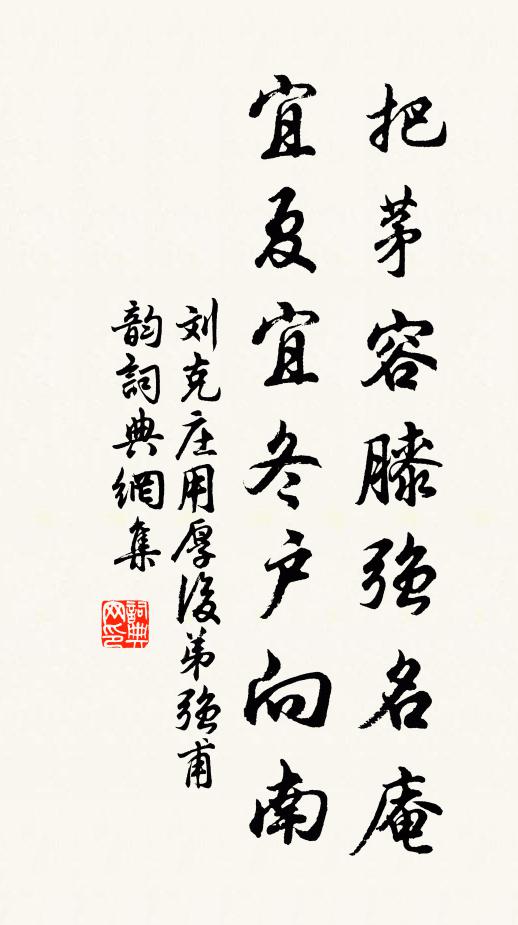 把茅容膝强名庵
宜夏宜冬户向南
刘克庄用厚后弟强甫
韵詞典網集
詞典网印